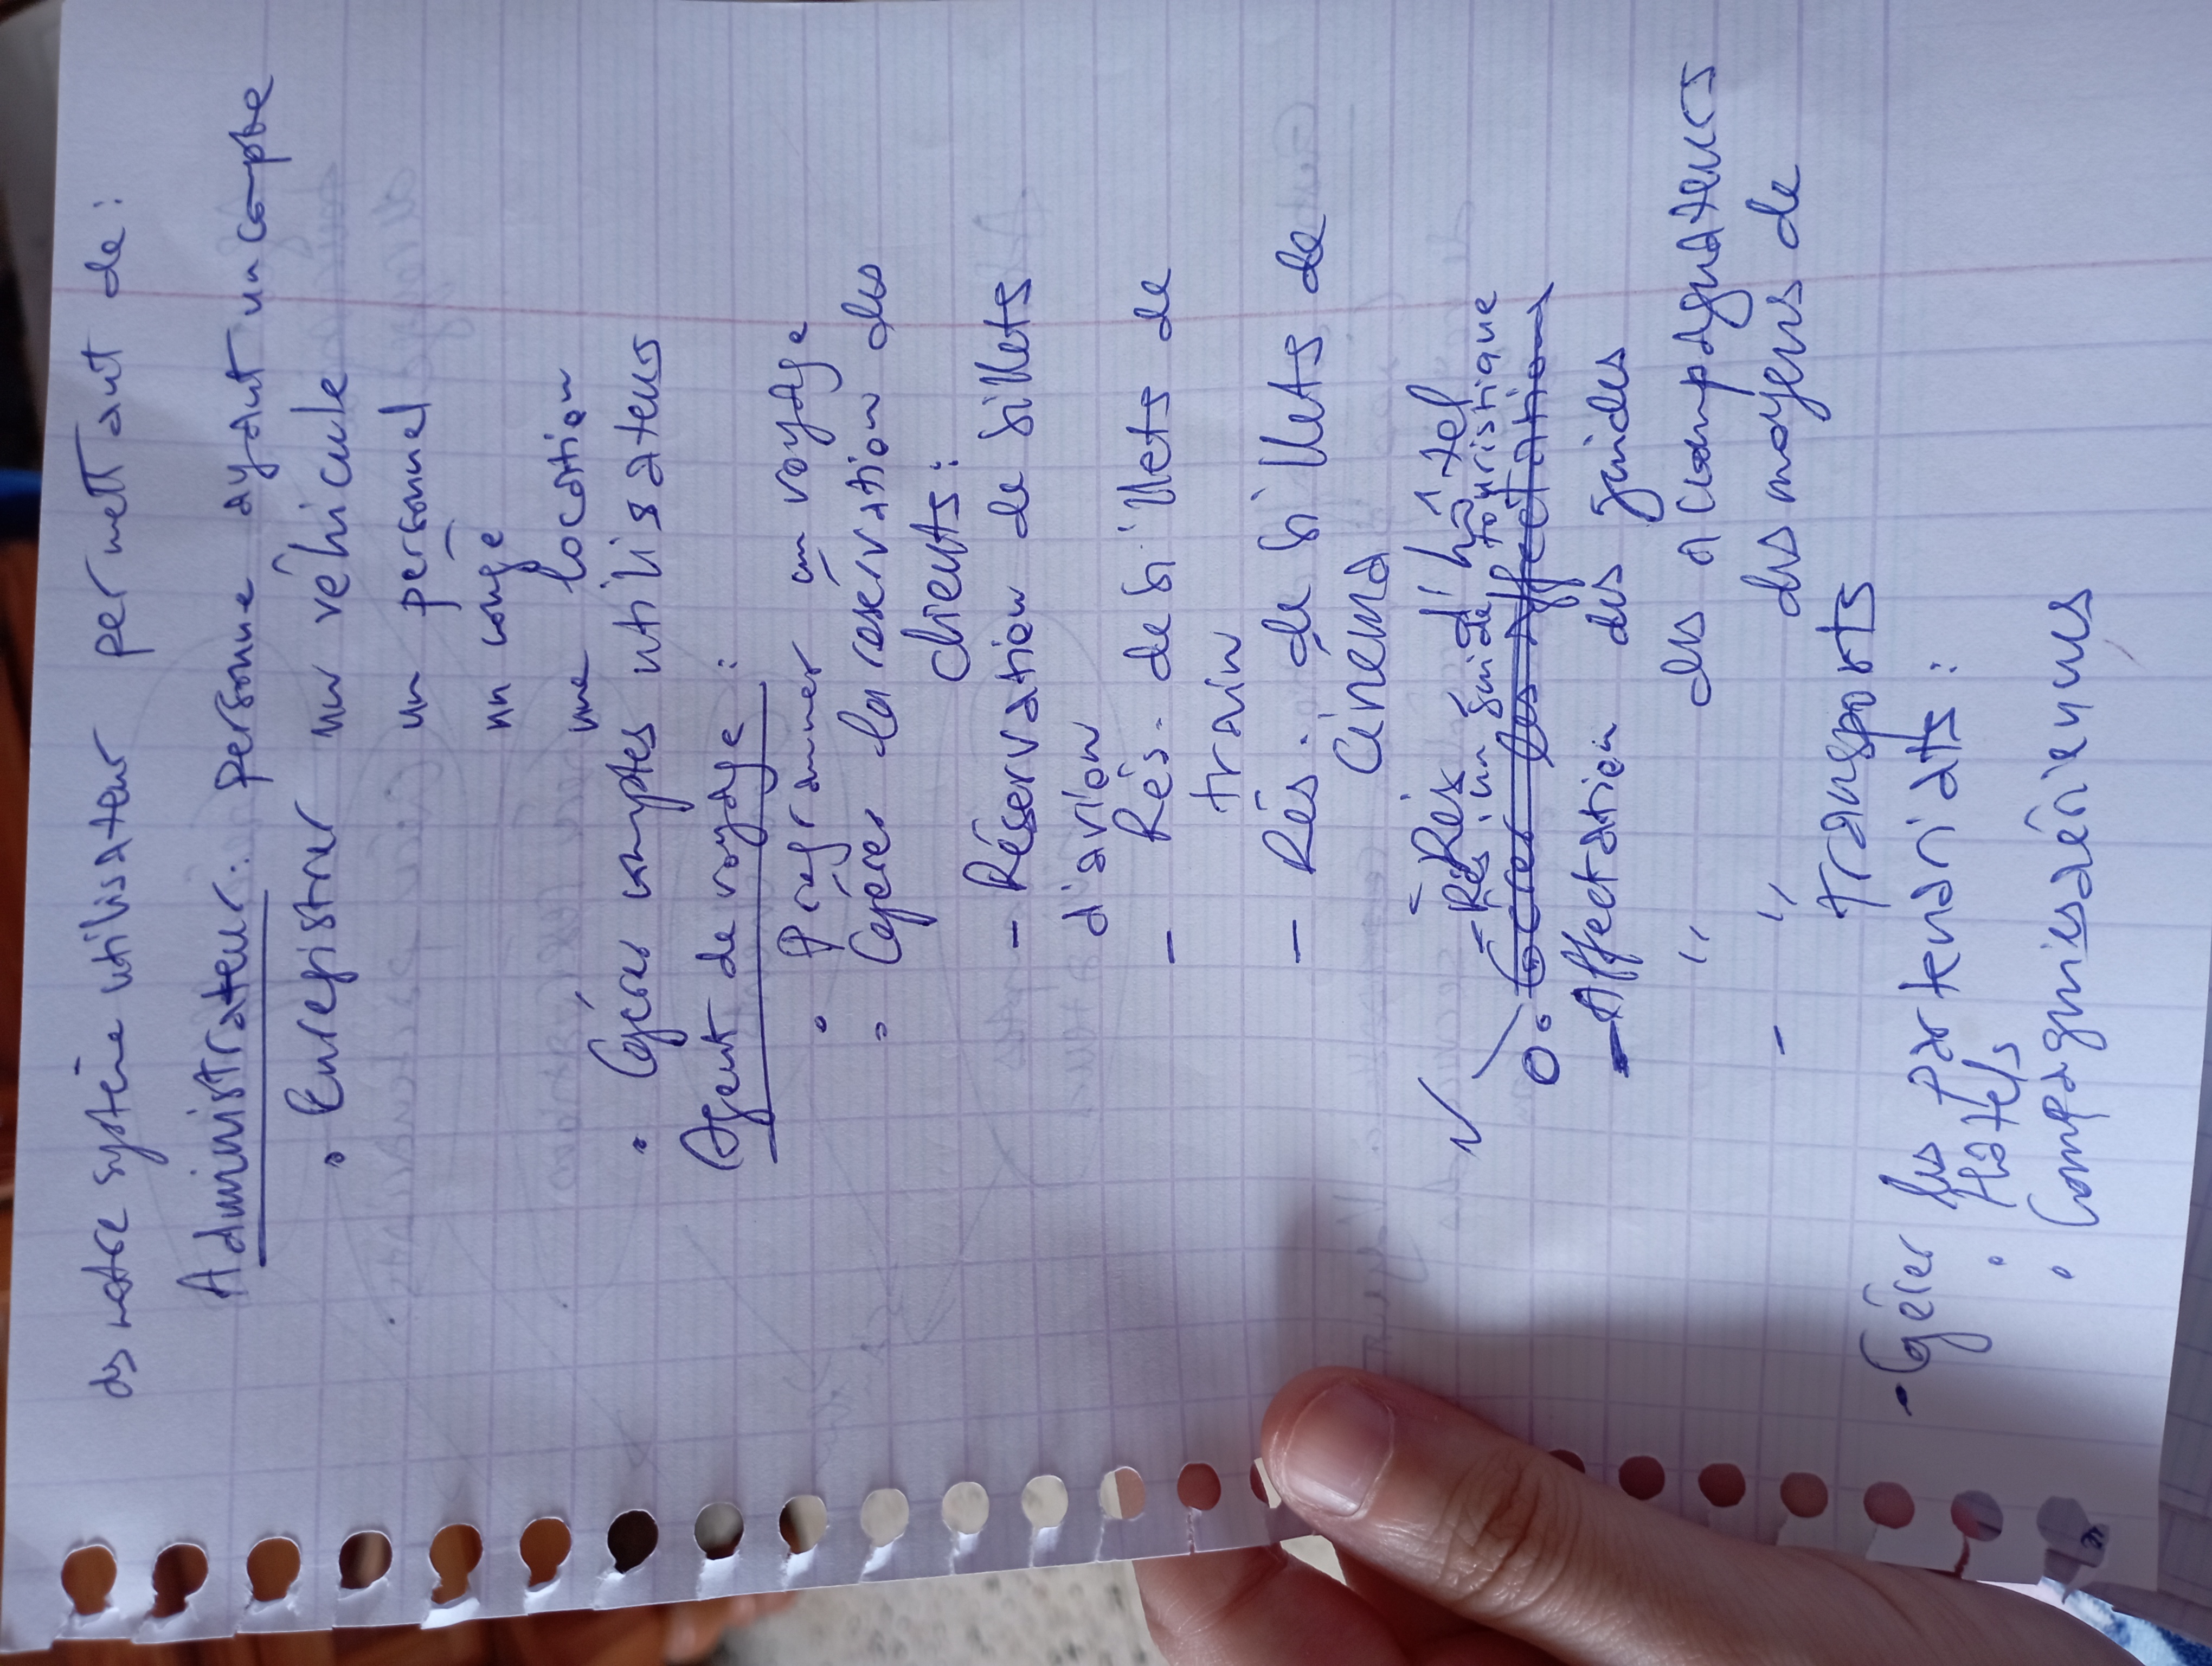 ds notre système utilisateur permettant de :
Administrateur : personne ayant un compte
• Enregistrer un véhicule
un personnel
un congé
une location
• Gérer comptes utilisateurs
Agent de voyage :
• Programmer un voyage
• Gérer la réservation des
clients :
- Réservation de billets
d'avion
- Rés. de billets de
train
- Rés. de billets de
cinéma
- Rés d'hôtel
- Rés. un guide touristique
• Gérer les affectations
- Affectation des guides
" des accompagnateurs
- " des moyens de
transports
- Gérer les partenariats :
• Hôtels
• Compagnies aériennes